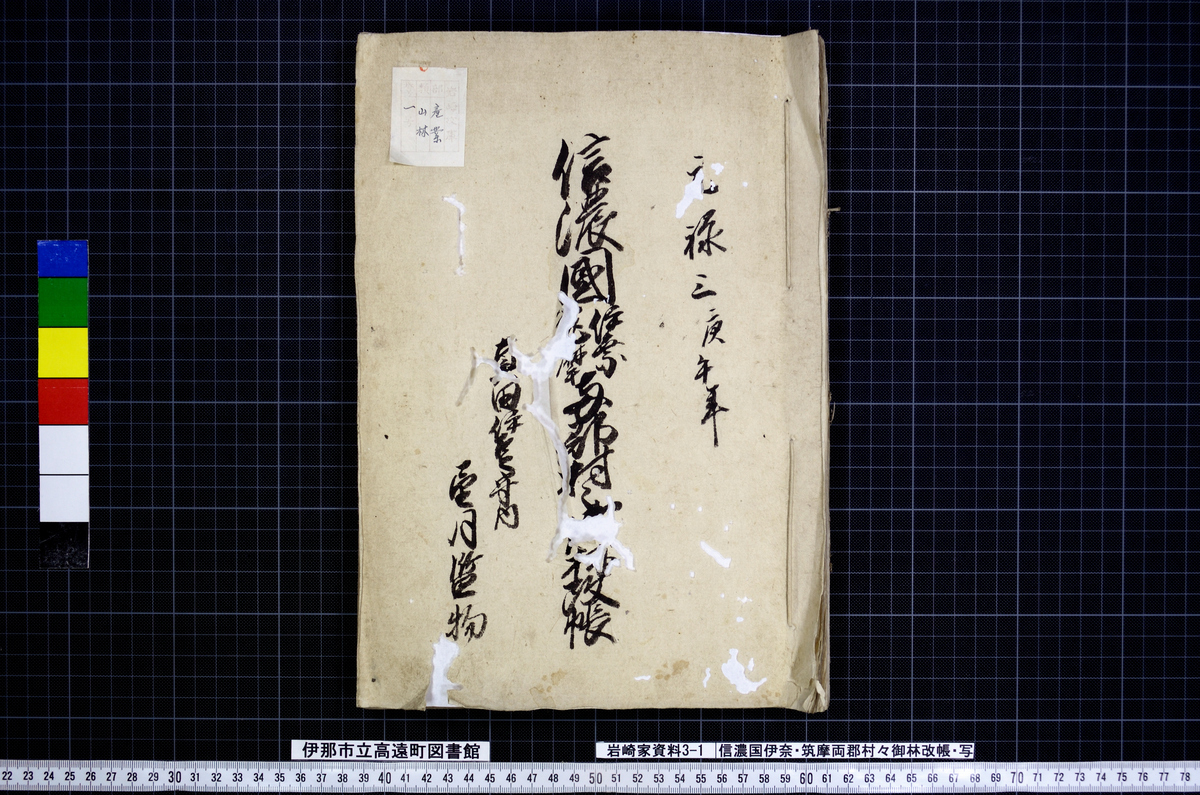 元禄三庚午年
信濃國
伊奈
摩
両郡村
改帳
真田伊豆守内
望月監物
産業
山林
一
伊那市立高遠町図書館
岩崎家資料3-1
信濃国伊奈・筑摩両郡村々御林改帳・写
22 23 24 25 26 27 28 29 30 31 32 33 34 35 36 37 38 39 40 41 42 43 44 45 46 47 48 49 50 51 52 53 54 55 56 57 58 59 60 61 62 63 64 65 66 67 68 69 70 71 72 73 74 75 76 77 78